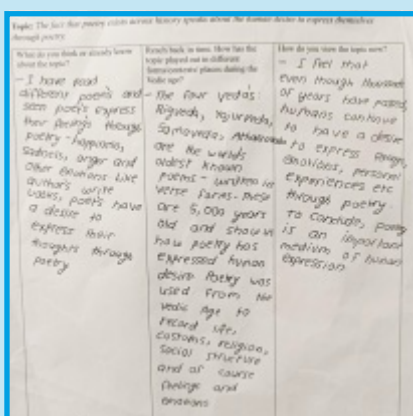 Topic: The fact that poetry exists across history speaks about the human desire to express themselves
through poetry
What do you think or already know
about the topic?
- I have read
different poems and
seen poets express
their feelings through
poetry - happiness,
sadness, anger and
other emotions like
author's write
books, poets have
a desire to
express their
thoughts through
poetry
Reach back in time. How has the
topic played out in different
places during the
Vedic age?
- The four Veda's:
Rigveda, Yajurveda,
Samaveda, Atharvaveda
are the worlds
oldest known
poems - written in
verse forms - these
are 5,000 years
old and show us
how poetry has
expressed human
desire Poetry was
used from the
Vedic Age to
record life,
customs, religion,
social structure
and of course
feelings and
emotions
How do you view the topic now?
- I feel that
even though thousands
of years have passed,
humans continue
to have a desire
to express
emotions, personal
experiences etc
through poetry.
To conclude, poetry
is an important
medium of human
expression